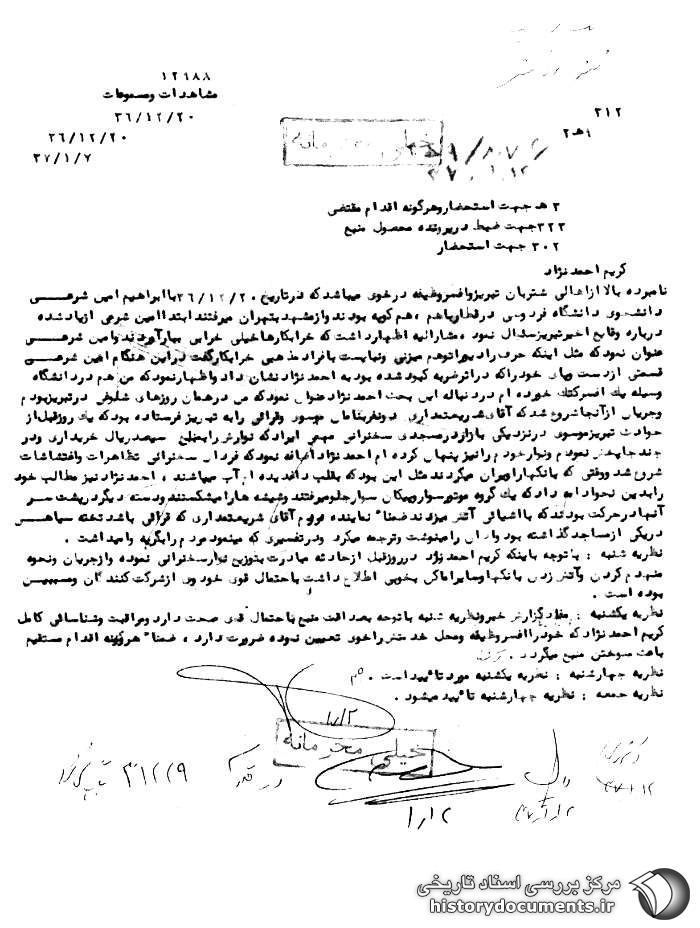 ۱۲۹۸۸
مشاهدات ومسموعات
۳۶/۱۲/۲۰
۳۱۲
۳۶/۱۲/۲۰
۱هـ۲
۳۷/۱/۷
خیلی محرمانه
۳ هـ جهت استحضار وهرگونه اقدام مقتضی
۳۲۲ جهت ضبط در پرونده محصول منبع
۳۰۲ جهت استحضار
کریم احمدنژاد
نامبرده بالا ازاهالی شتربان تبریز وافسروظیفه درخوی میباشد که درتاریخ ۳۶/۱۲/۲۰ باابراهیم امین شرعی
دانشجوی دانشگاه فردوسی درقطار باهم ، هم کوپه بودند وازمشهد بتهران میرفتند ابتدا امین شرعی ازیاد شده
درباره وقایع اخیرتبریز سئوال نمود ، مشارالیه اظهارداشت که خرابکارها خیلی خرابی ببارآوردند وامین شرعی
عنوان نمود که مثل اینکه حرف رادیو راتوهم میزنی ونبایست بافراد مذهبی خرابکارگفت دراین هنگام امین شرعی
قسمتی ازدست وپای خودراکه دراثرضربه کبود شده بود به احمدنژاد نشان داد واظهارنمود که من هم دردانشگاه
وسیله یک افسرکتک خورده ام دردنباله این بحث احمدنژاد عنوان نمود که من درهمان روزهای شلوغی درتبریز بودم
وجریان ازآنجا شروع شد که آقای شریعتمداری دونفربنامان موسوی وقراقی رابه تبریز فرستاده بود که یک روزقبل از
حوادث تبریز موسوی درنزدیکی بازار درمسجدی سخنرانی مهمی ایراد که نوارش رابمبلغ سیصد ریال خریداری ودر
چند جا پخش نمودم ونوار خودم رانیز پنهان کرده ام احمدنژاد اضافه نمود که فردای سخنرانی تظاهرات واغتشاشات
شروع شد ووقتی که بانکها راویران میکردند مثل این بود که بقلب داغدیده ام آب میپاشند ، احمدنژاد نیز مطالب خود
رابدین نحوادامه داد که یک گروه موتورسوار وپیکان سوار جلو میرفتند وشیشه ها رامیشکستند ودسته دیگردرپشت سر
آنها درحرکت بودند که بااشیائی آتش میزدند ضمنا" نماینده دوم آقای شریعتمداری که قراقی باشد تخته سیاهی
دریکی ازمساجد گذاشته بود وقرآن رامینوشت وترجمه میکرد ودرتفسیری که مینمود مردم رابگریه وامیداشت .
نظریه شنبه : باتوجه باینکه کریم احمدنژاد درروزقبل ازحادثه مبادرت بتوزیع نوارسخنرانی نموده وازجریان ونحوه
منهدم کردن وآتش زدن بانکها وسایراماکن بخوبی اطلاع داشت باحتمال قوی خود وی ازشرکت کنندگان ومسببین
بوده است .
نظریه یکشنبه : مفادگزارش خبرونظریه شنبه باتوجه بصداقت منبع باحتمال قوی صحت دارد ومراقبت وشناسائی کامل
کریم احمدنژاد که خودراافسروظیفه ومحل خدمتش راخوی تعیین نموده ضرورت دارد ، ضمنا" هرگونه اقدام مستقیم
باعث سوختن منبع میگردد .
نظریه چهارشنبه : نظریه یکشنبه مورد تائید است .
نظریه جمعه : نظریه چهارشنبه تائید میشود .
خیلی محرمانه
مرکز بررسی اسناد تاریخی
historydocuments.ir